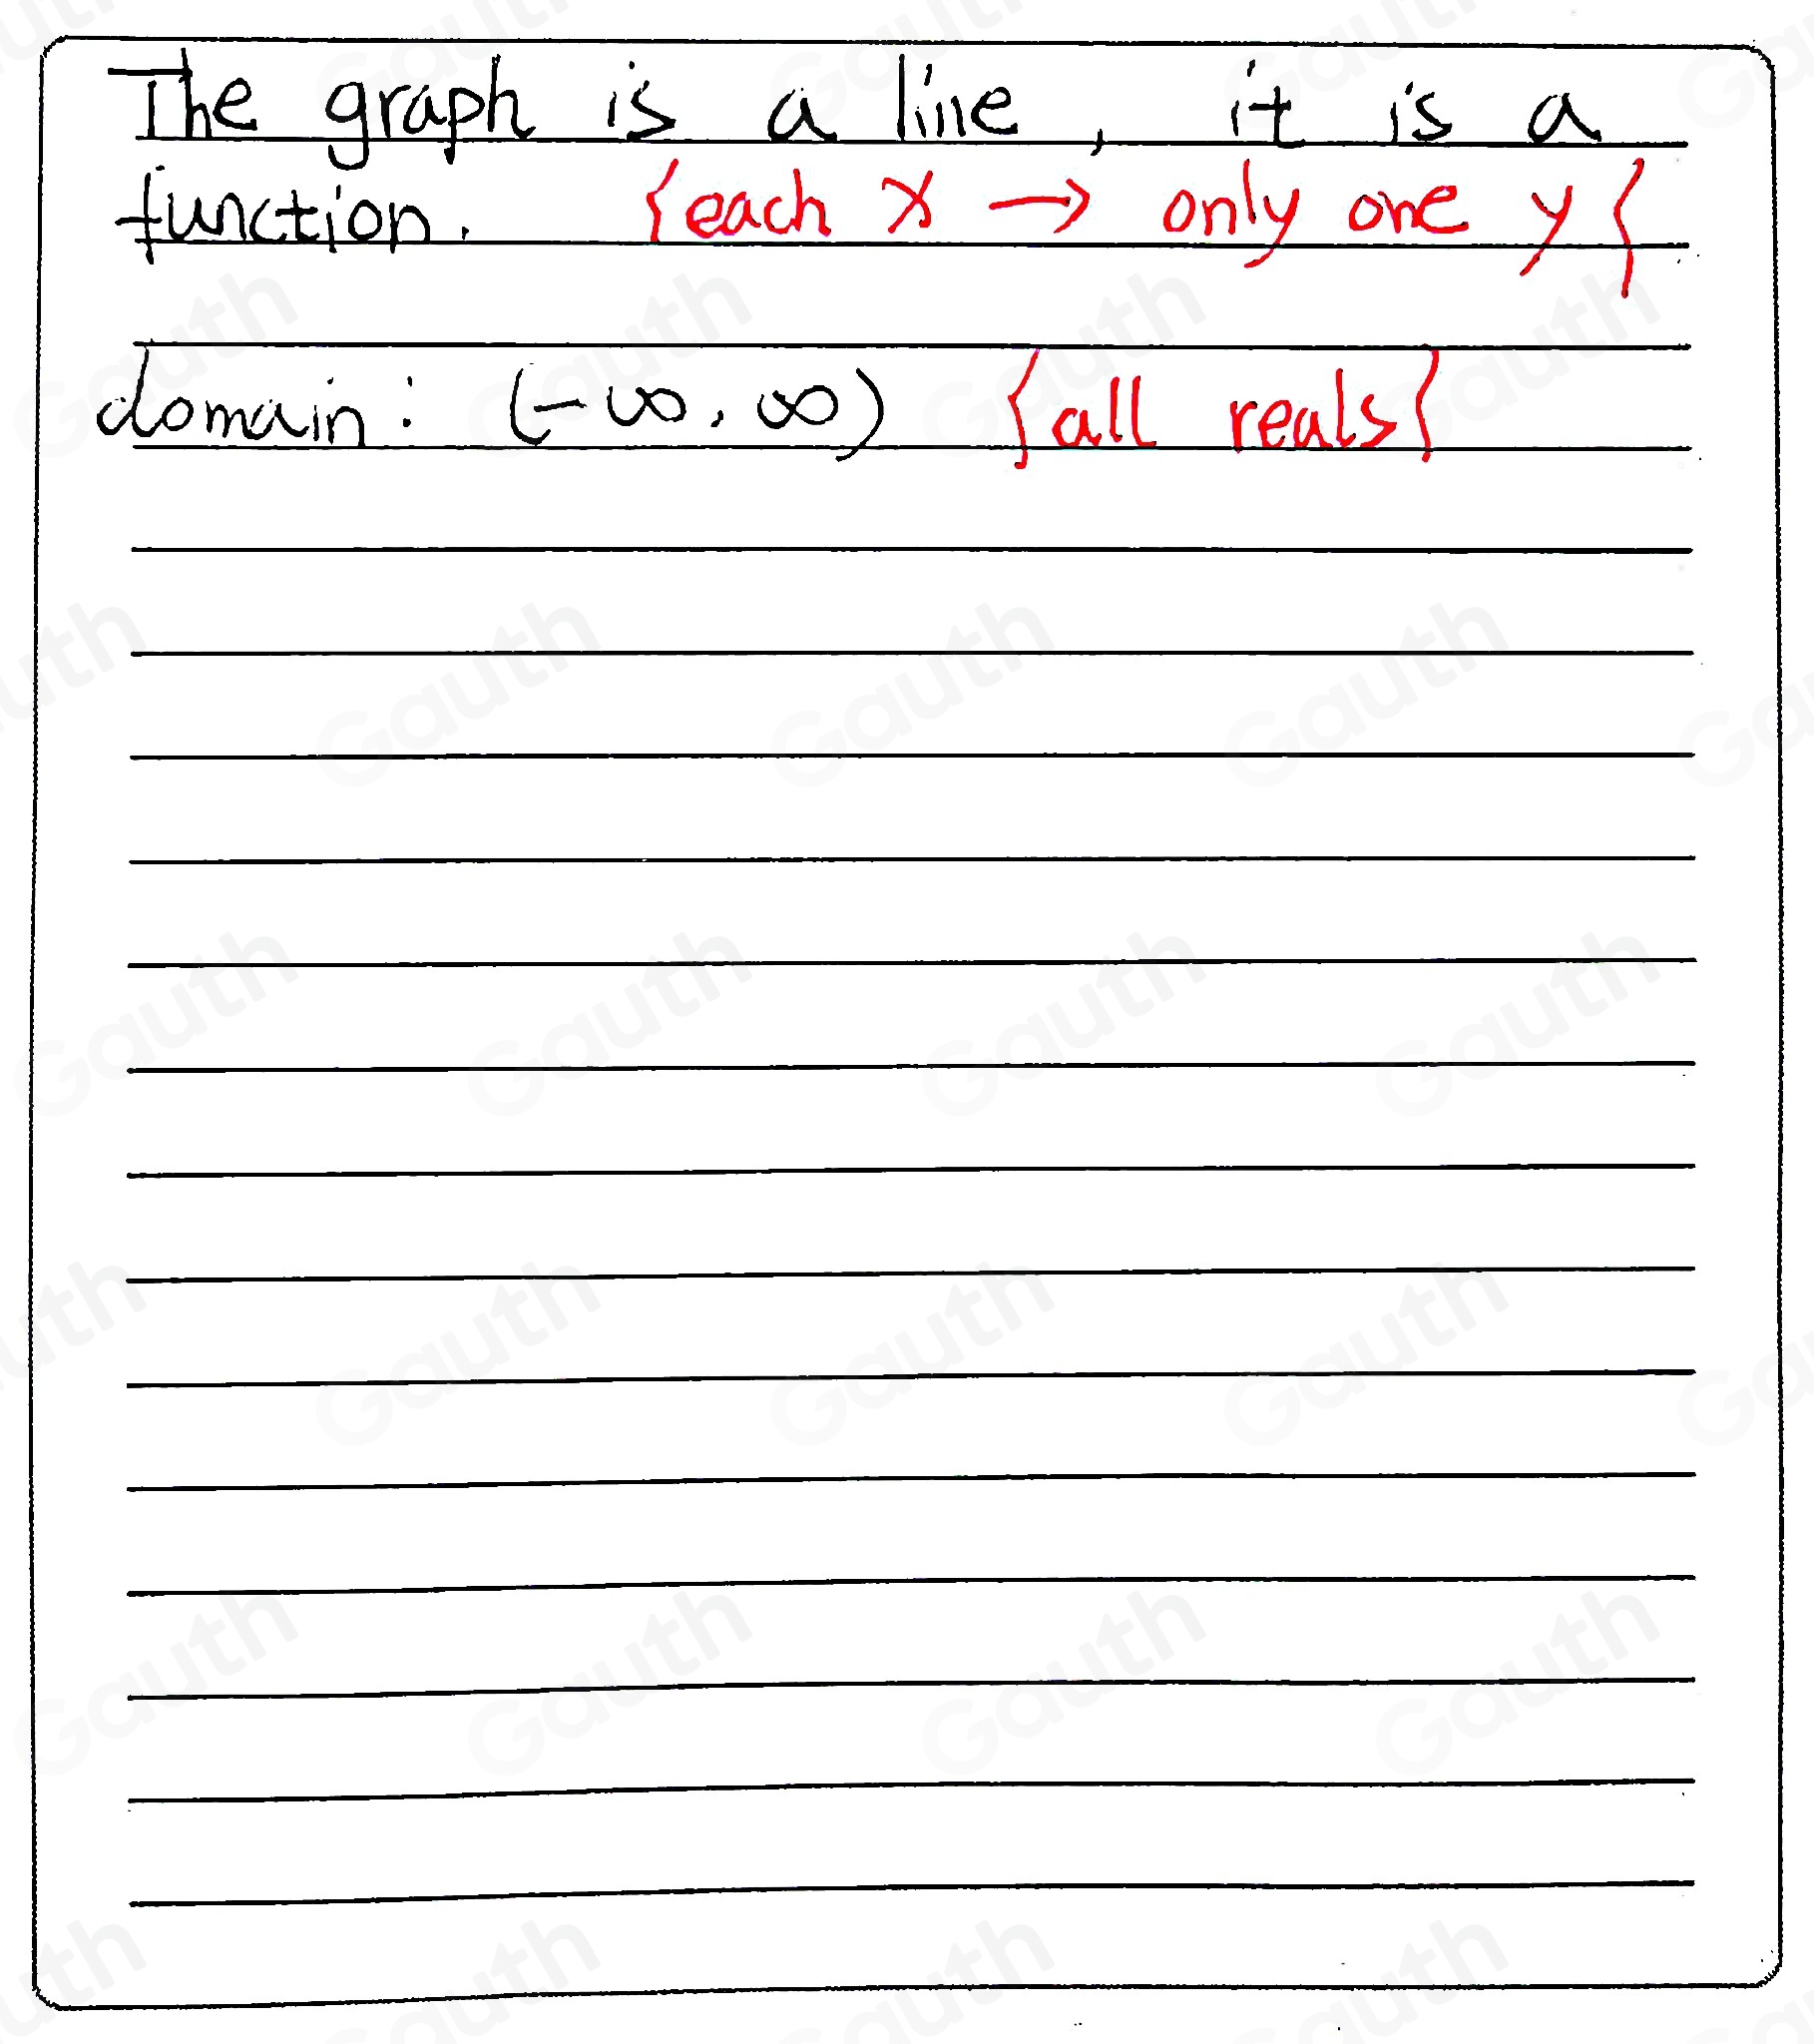 The graph is a line, it is a
function. {each x → only one y}
domain: (-∞, ∞) {all reals}